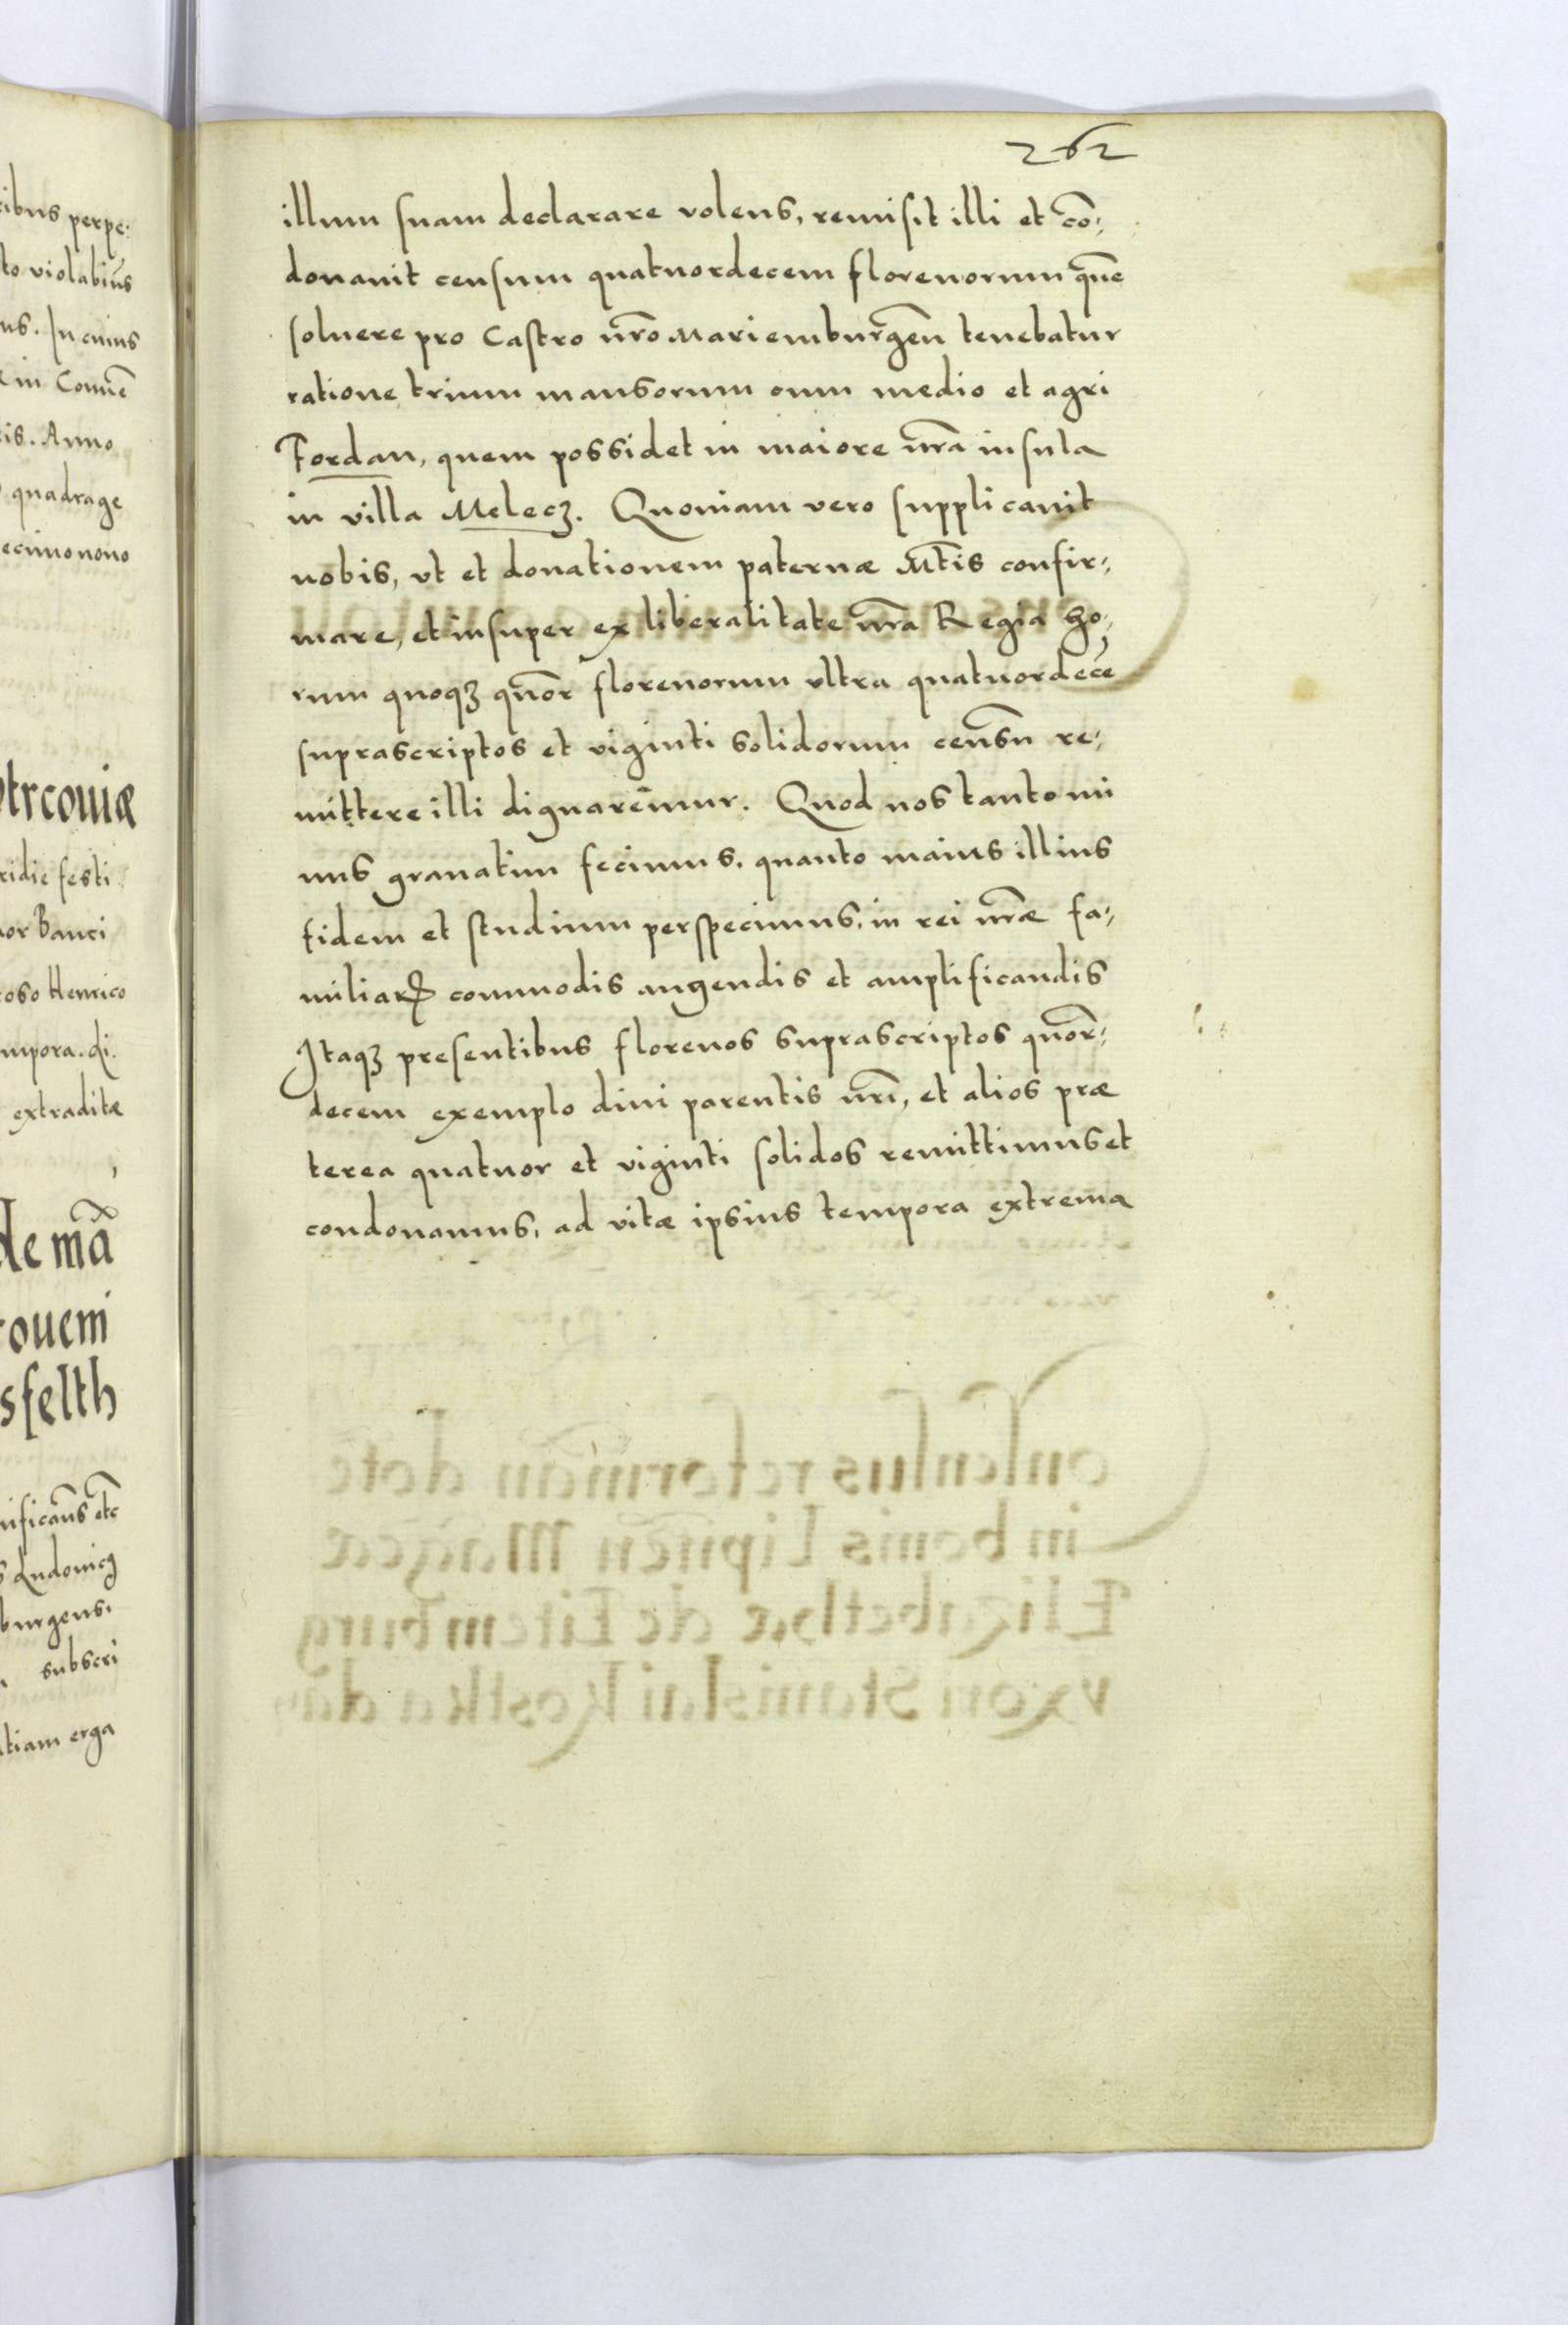 262
illum suam declarare volens, remisit illi et cō-
donauit censum quatuordecem florenorum quē
soluere pro Castro nr̄o Mariemburgeñ tenebatur
ratione trium mansorum cum medio et agri
Fordan, quem possidet in maiore nr̄a insula
in villa Melecz. Quoniam vero supplicauit
nobis, vt et donationem paternæ Mt̄is confir-
mare, et insuper ex liberalitate nr̄a Regia ho-
rum quoqꝫ quōr florenorum vltra quatuordecē
suprascriptos et viginti solidorum censū re-
mittere illi dignarēmur. Quod nos tanto mi
nus grauatim fecimus, quanto maius illius
fidem et studium perspecimus, in rei nr̄æ fa-
miliaꝝ commodis augendis et amplificandis
Itaqꝫ presentibus florenos suprascriptos quōr-
decem exemplo diui parentis nr̄i, et alios præ
terea quatuor et viginti solidos remittimus et
condonamus, ad vitæ ipsius tempora extrema
ibus perpe:
to violabim̄s
us. In cuius
in Conuē
is. Anno
quadrage
ecimonono
trcouiæ
ridie festi
or Banci
oso Henrico
mpora. di.
extraditæ
de mā
rouem
sfelth
nificam̄s etc̄
Ludouicꝫ
burgensi
subscri
tiam erga